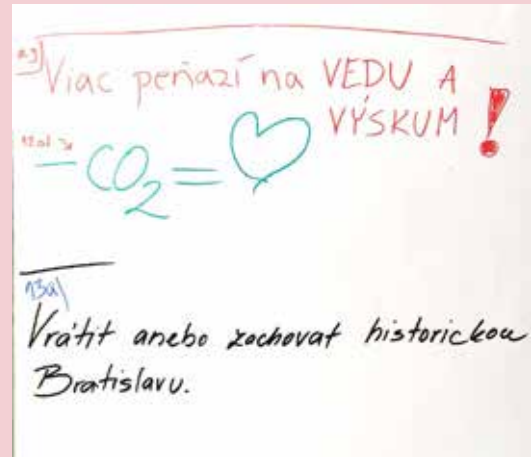 Viac peňazí na VEDU A
VÝSKUM !
- CO₂ = ♡
13a)
Vrátit anebo zachovat historickou
Bratislavu.